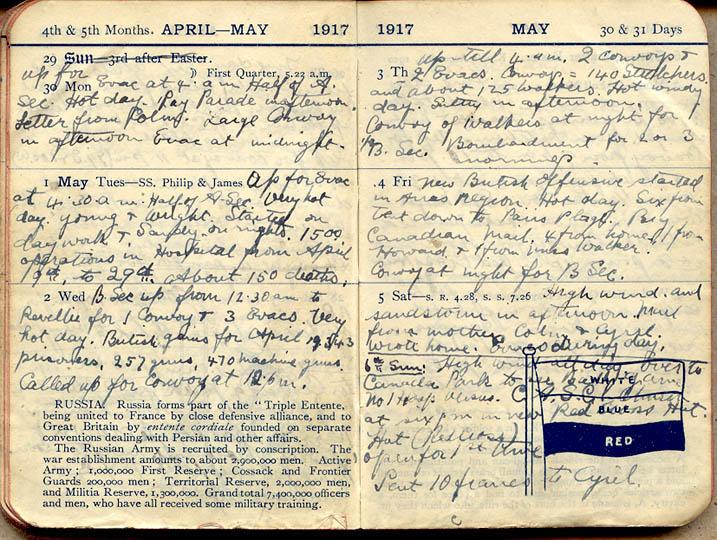 4th & 5th Months. APRIL—MAY 1917
29 Sun—3rd after Easter.
up for ☽ First Quarter, 5.22 a.m.
30 Mon Evac at 4. a.m. Half of A.
Sec. Hot day. Pay Parade in afternoon.
Letter from Colin. Large Convoy
in afternoon Evac at midnight.
1 May Tues—SS. Philip & James Up for Evac
at 4.30 a m. Half of A Sec. Very hot
day. Young & Wright. Started on
day work & Sandy on nights. 1500
operations in Hospital from April
9th. to 29th. About 150 deaths.
2 Wed B. Sec up from 12.30 am to
Reveille for 1 Convoy & 3 Evacs. Very
hot day. British gains for April 19,343
prisoners, 257 guns, 470 machine guns.
Called up for Convoy at 12 p.m.
RUSSIA. Russia forms part of the "Triple Entente,
being united to France by close defensive alliance, and to
Great Britain by entente cordiale founded on separate
conventions dealing with Persian and other affairs.
The Russian Army is recruited by conscription. The
war establishment amounts to about 2,900,000 men. Active
Army; 1,000,000 First Reserve; Cossack and Frontier
Guards 200,000 men; Territorial Reserve, 2,000,000 men,
and Militia Reserve, 1,300,000. Grand total 7,400,000 officers
and men, who have all received some military training.
1917 MAY 30 & 31 Days
up till 4. a.m. 2 convoys &
3 Th 2 Evacs. Convoys = 140 Stretchers.
and about 125 walkers. Hot windy
day. in afternoon.
Convoy of walkers at night for
B. Sec. Bombardment for 2 or 3
mornings.
4 Fri New British Offensive started
in Arras Region. Hot day. Six from
tent down to Paris Plage. Big
Canadian mail. 4 from home, 1 from
Howard & 1 from Miss Walker.
Convoy at night for B Sec.
5 Sat—S. R. 4.28, S. S. 7.26 High wind. and
sandstorm in afternoon. Mail
from mother, Colin & Cyril.
Wrote home. during day.
6th Sun: High wind all day. Over to
Canada Park to see
No 1 Hosp. versus
at six p m in new Red Cross Hut.
Hut (Red Cross)
open for 1st time
Sent 10 francs to Cyril.
WHITE
BLUE
RED